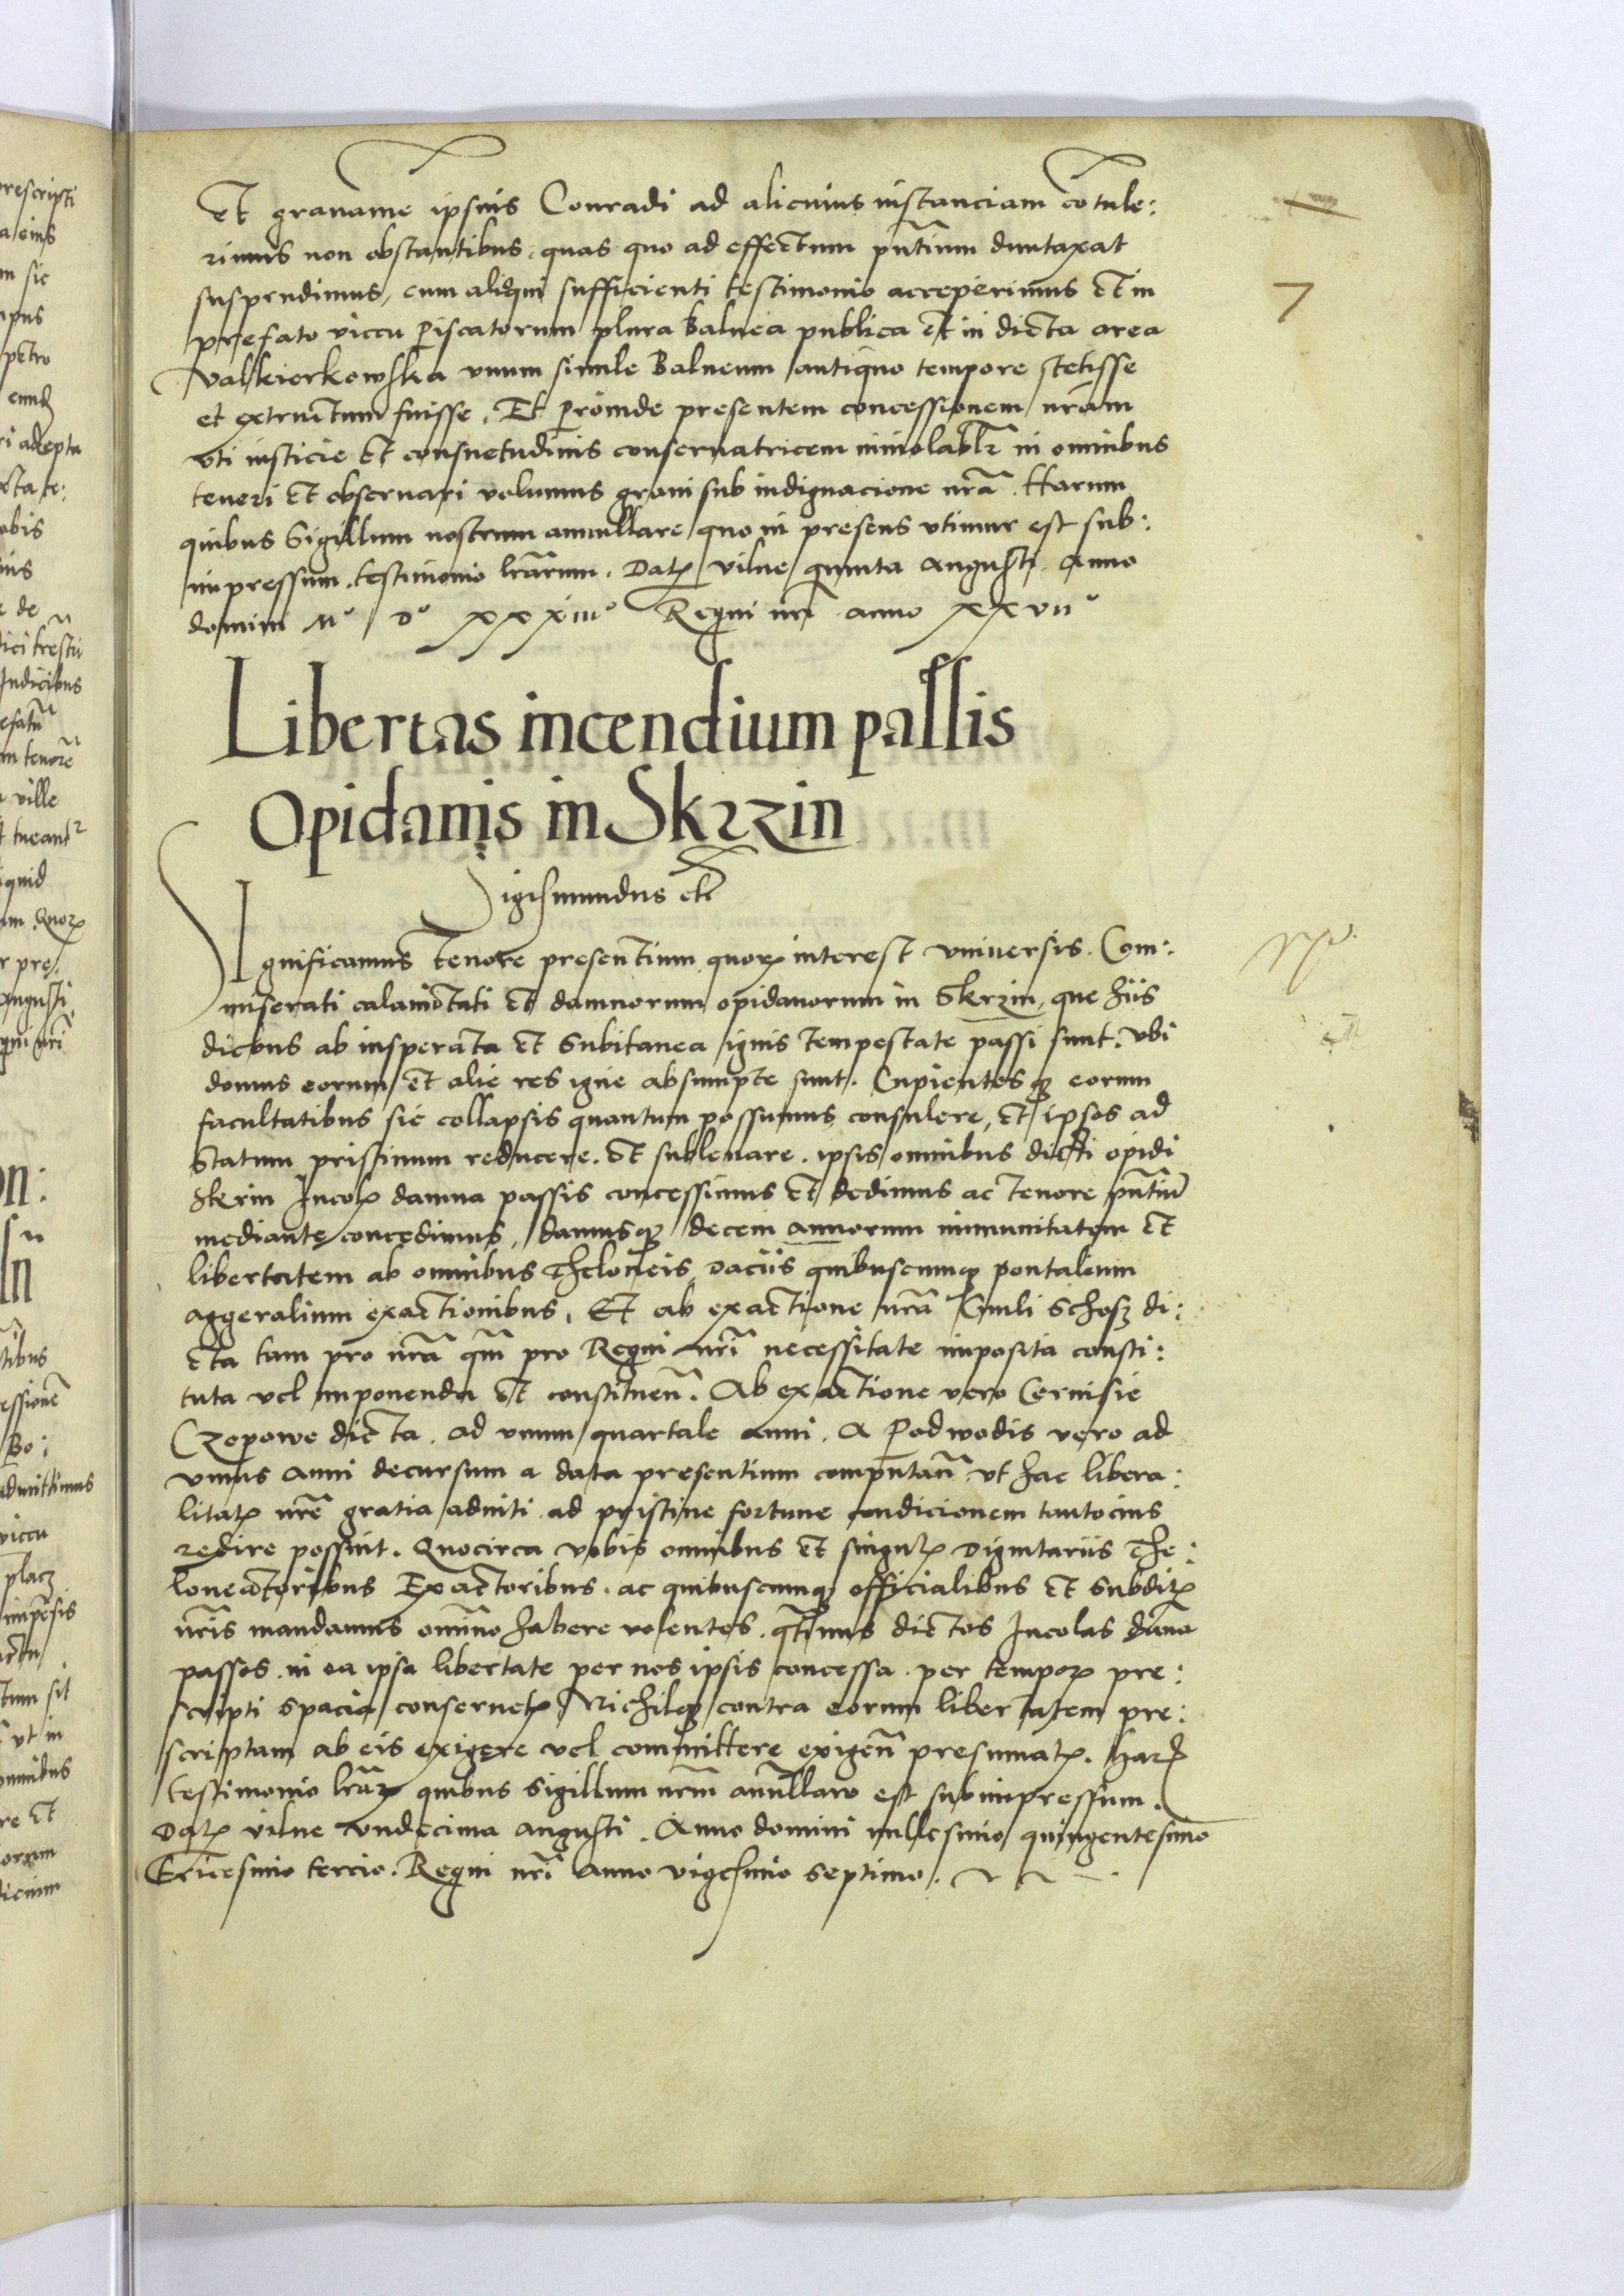 Et grauame ipsius Conradi ad alicuius instanciam cõtule:
rimus non obstantibus, quas quo ad effectum pñtium duntaxat
suspendimus, cum aliqui sufficienti testimonio acceperimus Et in
prefato viccu piscatorum plura Balnea publica et in dicta area
Valkierkowska vnum simile Balneum antiquo tempore stetisse
et extructum fuisse. Et proinde presentem concessionem nrãm
vti iusticie Et consuetudinis conseruatricem inuiolablr in omnibus
teneri Et obseruari volumus graui sub indignacione nrã. Harum
quibus Sigillum nostrum annullare quo in presens vtimur est sub:
impressum. testimonio lrãrum. Datꝭ vilne quinta Augusti Anno
domini Mº Dº xxxiiiº Regni nrĩ anno xxvııº
Libertas incendium passis
Opidanis in Skrzin
Sigismundus etc
Significamus Tenore presentium quorꝭ interest vniuersis. Com:
miserati calamitati Et damnorum opidanorum in Skrzin, que hiis
diebus ab insperata Et Subitanea ignis Tempestate passi sunt. vbi
domus eorum Et alie res igne absumpte sunt. Cupientesqꝫ eorum
facultatibus sic collapsis quantum possumus consulere, Et ipsos ad
Statum pristinum reducere. Et subleuare. ipsis omnibus dicti opidi
Skrin Incolꝭ damna passis concessimus Et dedimus ac Tenore pñtiũ
mediante concedimus, damusqꝫ decem annorum immunitatem Et
libertatem ab omnibus Theloneis, daciis quibuscumqꝫ pontalium
aggeralium exactionibus, Et ab exactione nrã Ciuili Schosz di:
cta tam pro nrã qm̃ pro Regni nrĩ necessitate imposita consti:
tuta vel imponenda Et constituen̄. Ab exactione vero Ceruisie
Czopowe dicta. ad vnum quartale anni. A Podwodis vero ad
vnius anni decursum a data presentium computan̄ vt hac libera:
litatꝭ nrẽ gratia adiuti ad pristine fortune condicionem tantocius
redire possint. Quocirca vobis omnibus Et singulꝭ Dignitariis The:
loneatoribus Exactoribus. ac quibuscumqꝫ officialibus Et Subditꝭ
nrĩs mandamus omĩno habere volentes. q̃tinus dictos Incolas dãna
passos. in ea ipsa libertate per nos ipsis concessa per temporꝭ pre:
scripti spacia conseruetꝭ Nichilqꝫ contra eorum libertatem pre:
scriptam ab eis exigere vel committere exigen̄ presumatꝭ. Harꝭ
testimonio lrãrꝭ quibus Sigillum nrm̃ anullare est subimpressum.
Datꝭ vilne vndecima Augusti. Anno domini millesimo quingentesimo
Tricesimo tercio. Regni nrĩ Anno vigesimo septimo.